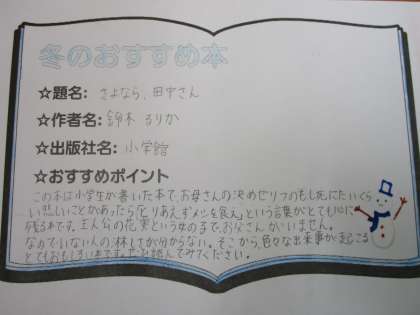 冬のおすすめ本
☆題名: さよなら、田中さん
☆作者名: 鈴木 るりか
☆出版社名: 小学館
☆おすすめポイント
この本は小学生が書いた本で、お母さんの決めゼリフのもし死にたいくら
い悲しいことがあったらとりあえずメシを食え」という言葉がとても心に
残る本です。主人公の花実という女の子で、お父さんがいません。
なので いない人の淋しさが分からない。そこから、色々な出来事が起こる
とてもおもしろい本です。ぜひ読んでみてください。